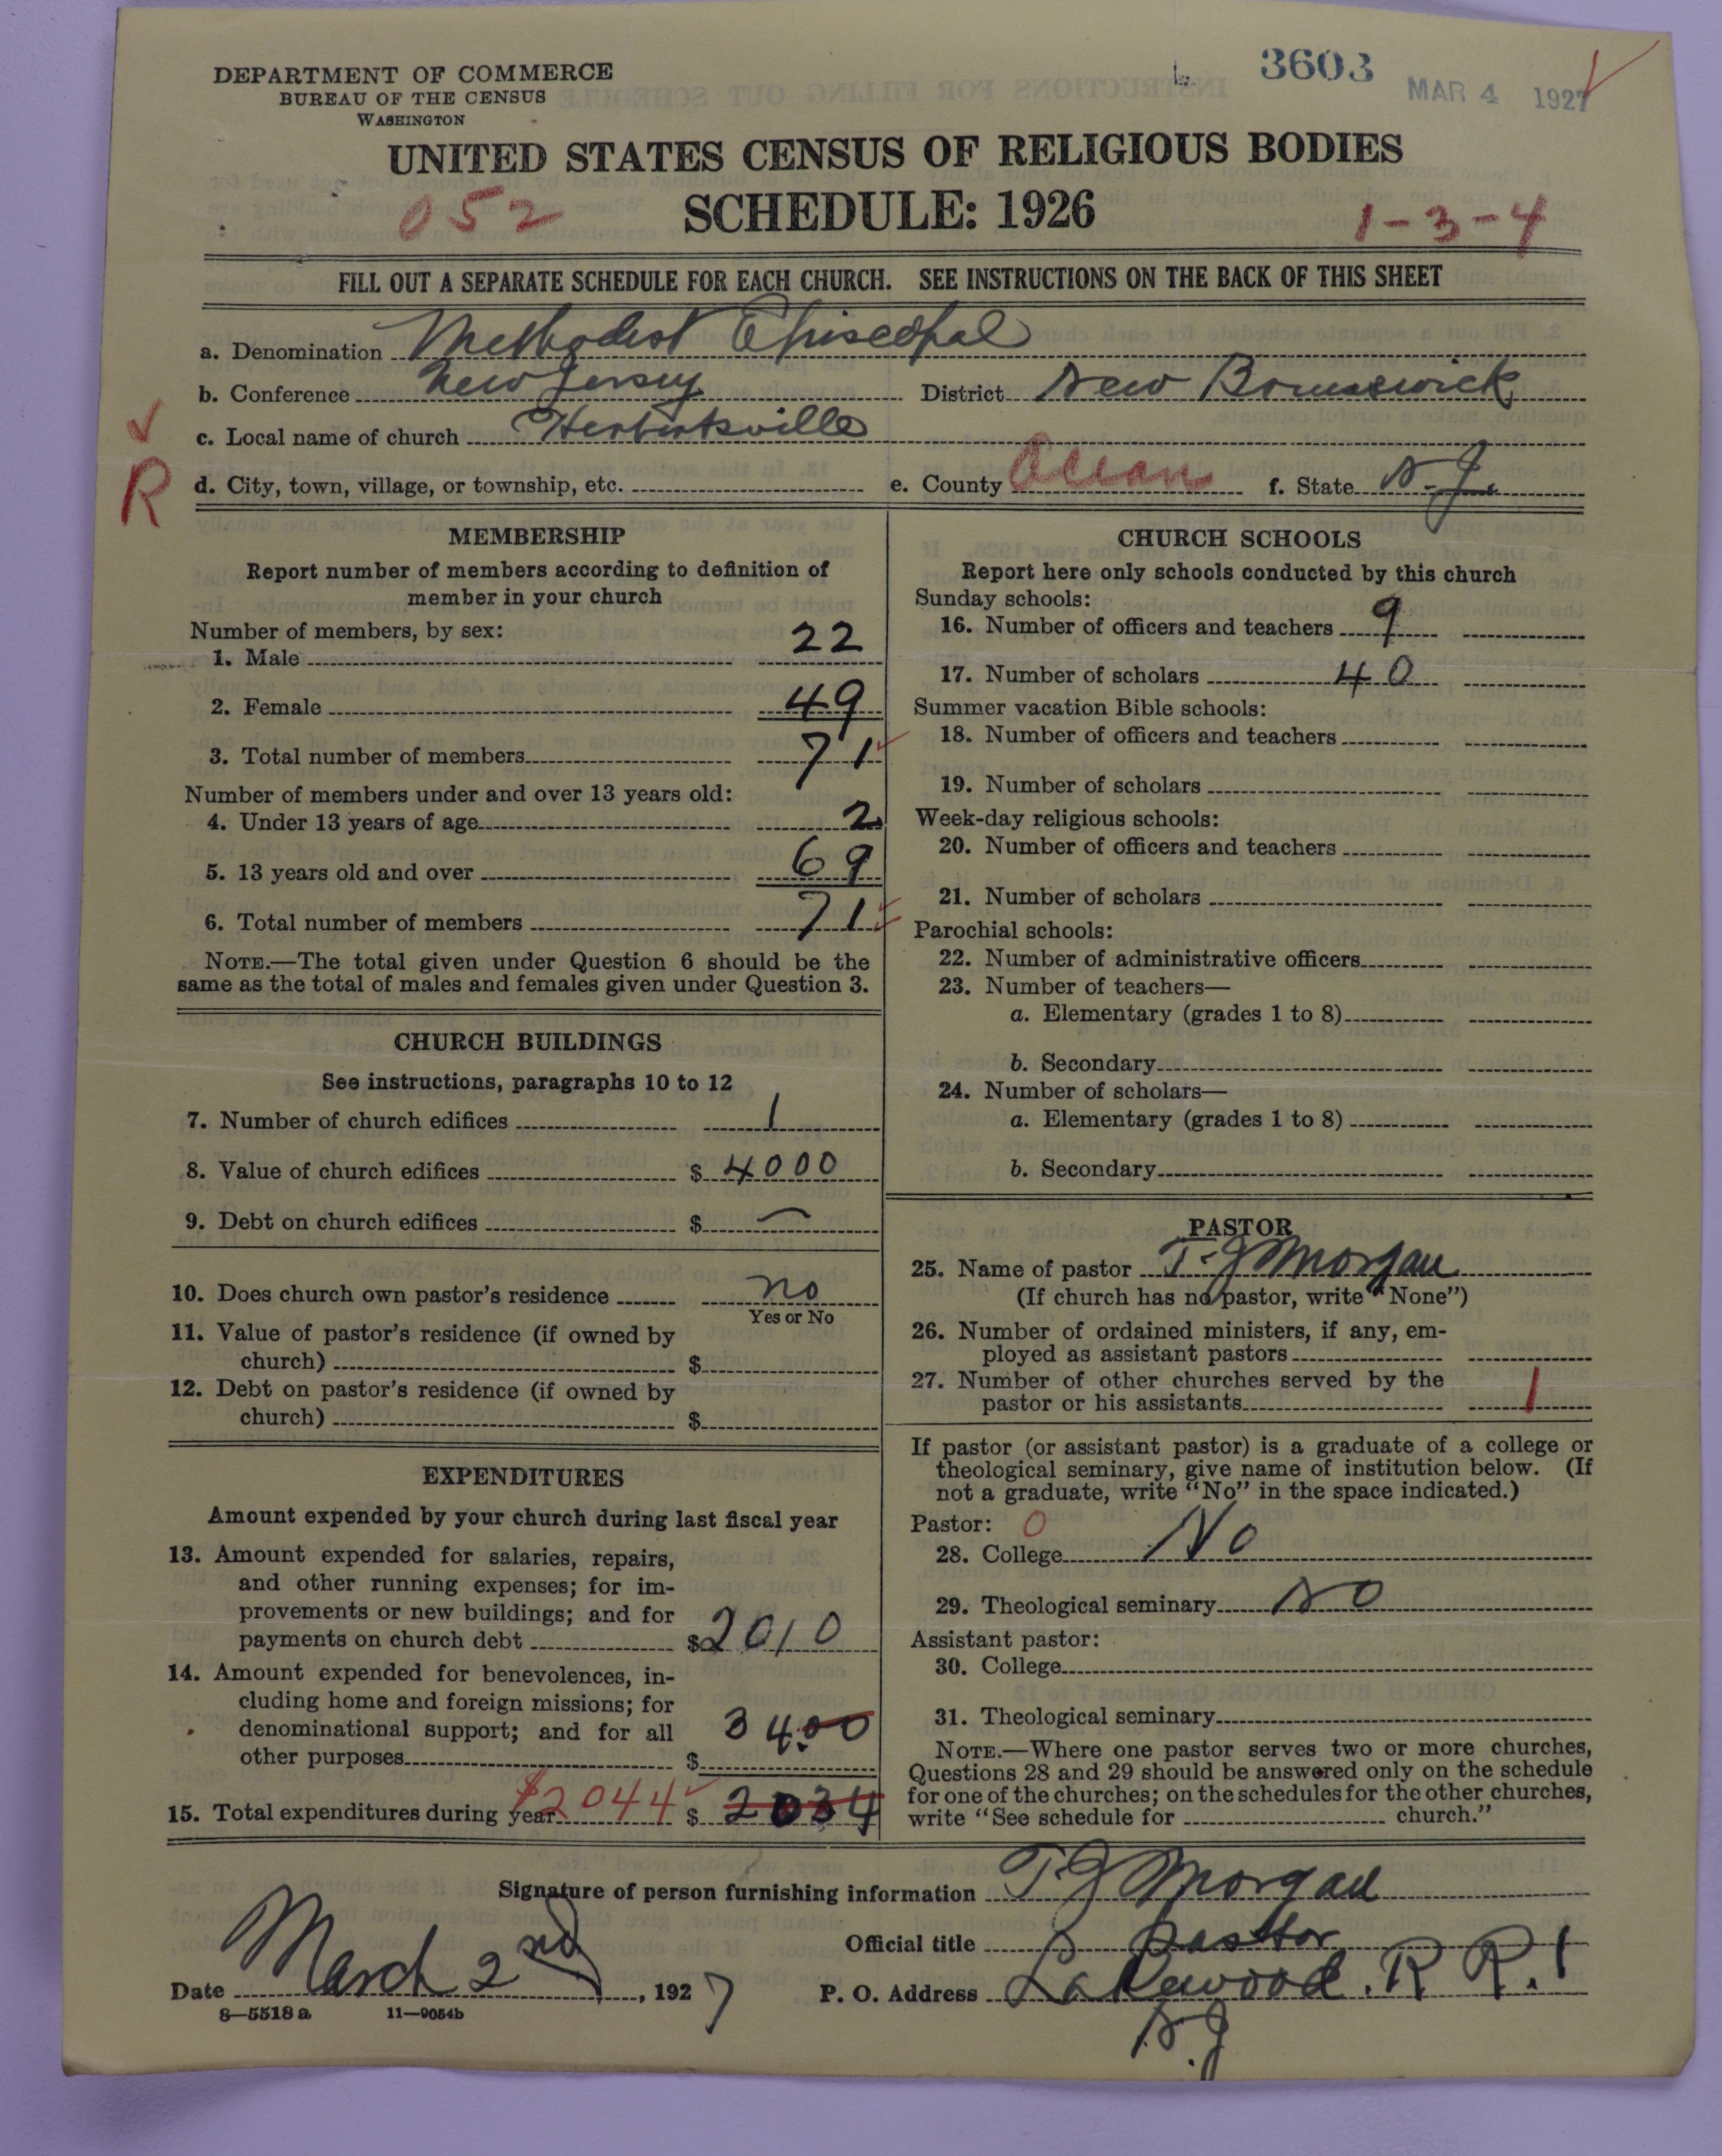 DEPARTMENT OF COMMERCE
BUREAU OF THE CENSUS
WASHINGTON
3603
MAR 4 1927
UNITED STATES CENSUS OF RELIGIOUS BODIES
052 SCHEDULE: 1926 1-3-4
FILL OUT A SEPARATE SCHEDULE FOR EACH CHURCH. SEE INSTRUCTIONS ON THE BACK OF THIS SHEET
a. Denomination Methodist Episcopal
b. Conference New Jersey District New Brunswick
c. Local name of church Herbertsville
R d. City, town, village, or township, etc. e. County Ocean f. State N.J.
MEMBERSHIP
Report number of members according to definition of
member in your church
Number of members, by sex:
1. Male 22
2. Female 49
3. Total number of members 71
Number of members under and over 13 years old:
4. Under 13 years of age 2
5. 13 years old and over 69
6. Total number of members 71
NOTE.—The total given under Question 6 should be the
same as the total of males and females given under Question 3.
CHURCH BUILDINGS
See instructions, paragraphs 10 to 12
7. Number of church edifices 1
8. Value of church edifices $ 4000
9. Debt on church edifices $ —
10. Does church own pastor's residence no
Yes or No
11. Value of pastor's residence (if owned by
church) $
12. Debt on pastor's residence (if owned by
church) $
EXPENDITURES
Amount expended by your church during last fiscal year
13. Amount expended for salaries, repairs,
and other running expenses; for im-
provements or new buildings; and for
payments on church debt $2010
14. Amount expended for benevolences, in-
cluding home and foreign missions; for
denominational support; and for all 34.00
other purposes $
15. Total expenditures during year $2044 $ 2034
CHURCH SCHOOLS
Report here only schools conducted by this church
Sunday schools:
16. Number of officers and teachers 9
17. Number of scholars 40
Summer vacation Bible schools:
18. Number of officers and teachers
19. Number of scholars
Week-day religious schools:
20. Number of officers and teachers
21. Number of scholars
Parochial schools:
22. Number of administrative officers
23. Number of teachers—
a. Elementary (grades 1 to 8)
b. Secondary
24. Number of scholars—
a. Elementary (grades 1 to 8)
b. Secondary
PASTOR
25. Name of pastor T. J Morgan
(If church has no pastor, write "None")
26. Number of ordained ministers, if any, em-
ployed as assistant pastors
27. Number of other churches served by the
pastor or his assistants 1
If pastor (or assistant pastor) is a graduate of a college or
theological seminary, give name of institution below. (If
not a graduate, write "No" in the space indicated.)
Pastor: 0
28. College No
29. Theological seminary No
Assistant pastor:
30. College
31. Theological seminary
NOTE.—Where one pastor serves two or more churches,
Questions 28 and 29 should be answered only on the schedule
for one of the churches; on the schedules for the other churches,
write "See schedule for church."
Signature of person furnishing information T. J Morgan
Official title pasttor
Date March 2nd, 1927 P. O. Address Lakewood. R R. 1
N.J
8—5518 a 11—9054b